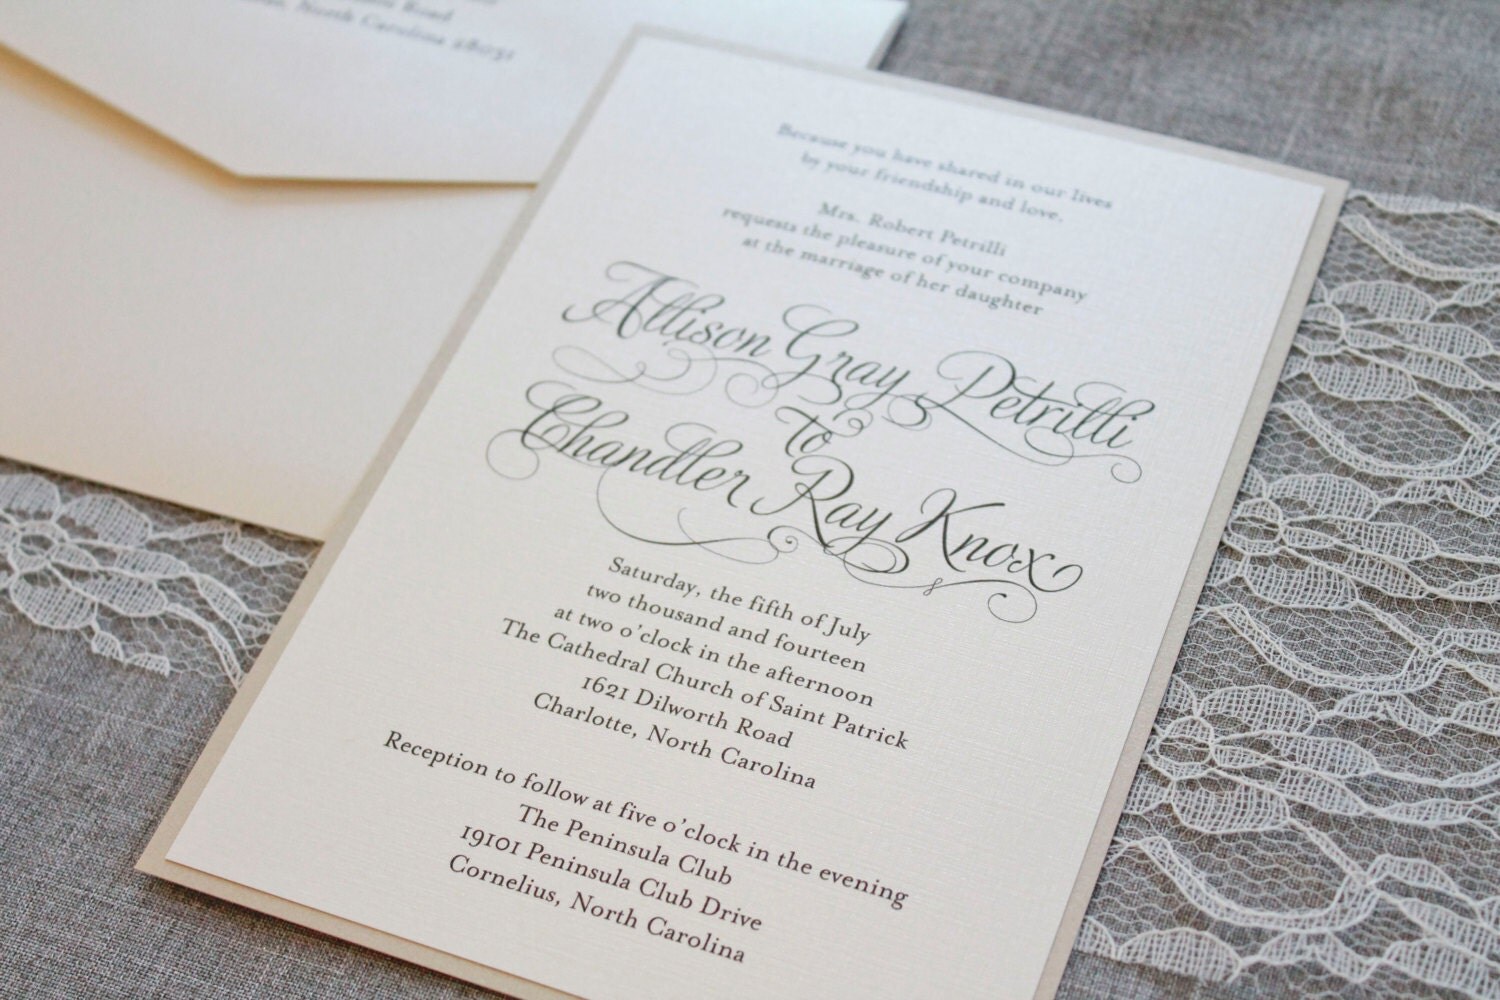 Road
North Carolina 28031
Because you have shared in our lives
by your friendship and love,
Mrs. Robert Petrilli
requests the pleasure of your company
at the marriage of her daughter
Allison Gray Petrilli
to
Chandler Ray Knox
Saturday, the fifth of July
two thousand and fourteen
at two o'clock in the afternoon
The Cathedral Church of Saint Patrick
1621 Dilworth Road
Charlotte, North Carolina
Reception to follow at five o'clock in the evening
The Peninsula Club
19101 Peninsula Club Drive
Cornelius, North Carolina